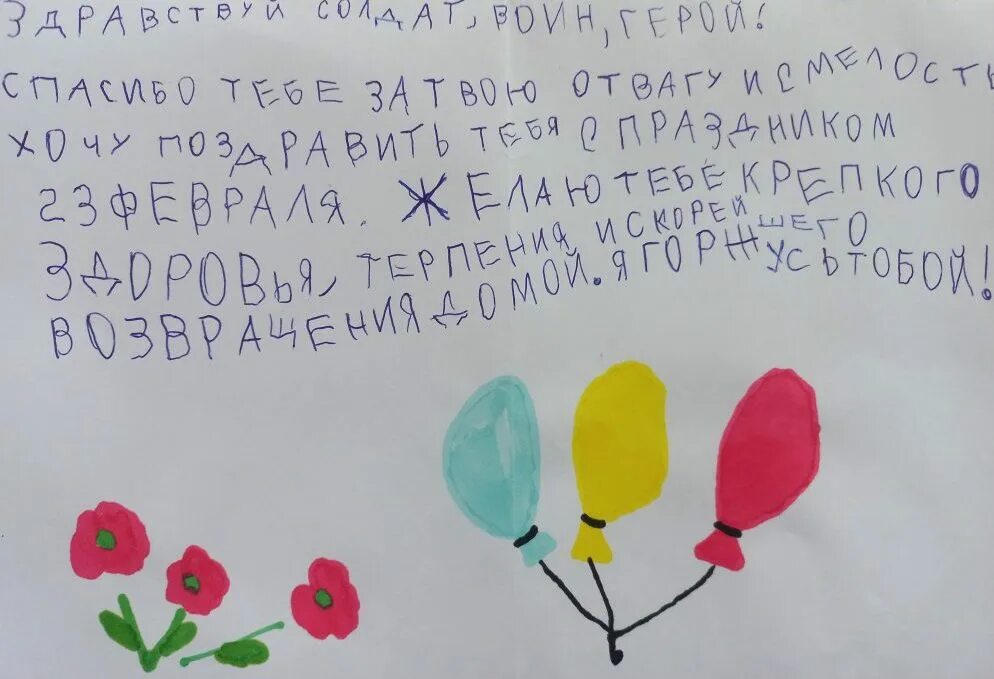 ЗДРАВСТВУЙ СОЛДАТ, ВОИН, ГЕРОЙ!
СПАСИБО ТЕБЕ ЗА ТВОЮ ОТВАГУ И СМЕЛОСТЬ
ХОЧУ ПОЗДРАВИТЬ ТЕБЯ С ПРАЗДНИКОМ
23 ФЕВРАЛЯ. ЖЕЛАЮ ТЕБЕ КРЕПКОГО
ЗДОРОВЬЯ, ТЕРПЕНИЯ, И СКОРЕЙШЕГО
ВОЗВРАЩЕНИЯ ДОМОЙ. Я ГОРЖУСЬ ТОБОЙ!